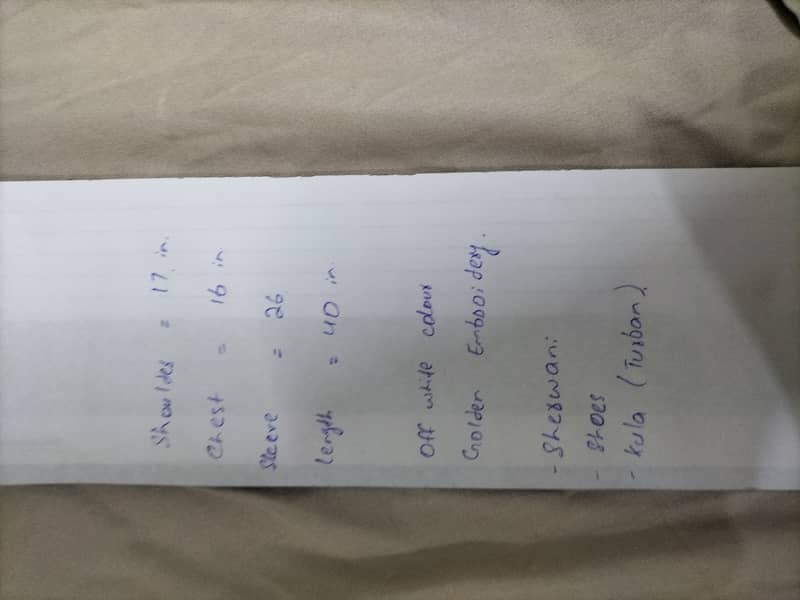 Shoulder = 17 in.
Chest = 16 in
Sleeve = 26
Length = 40 in.
Off white colour
Golden Embroidery.
- Sherwani
- Shoes
- Kula (Turban)